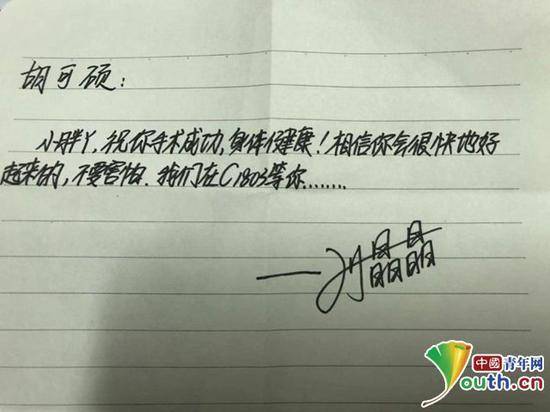 胡可硕：
小胖丫，祝你手术成功，身体健康！相信你会很快地好
起来的，不要害怕。我们在C1803等你……
——刘晶晶
中國青年网
Youth.cn